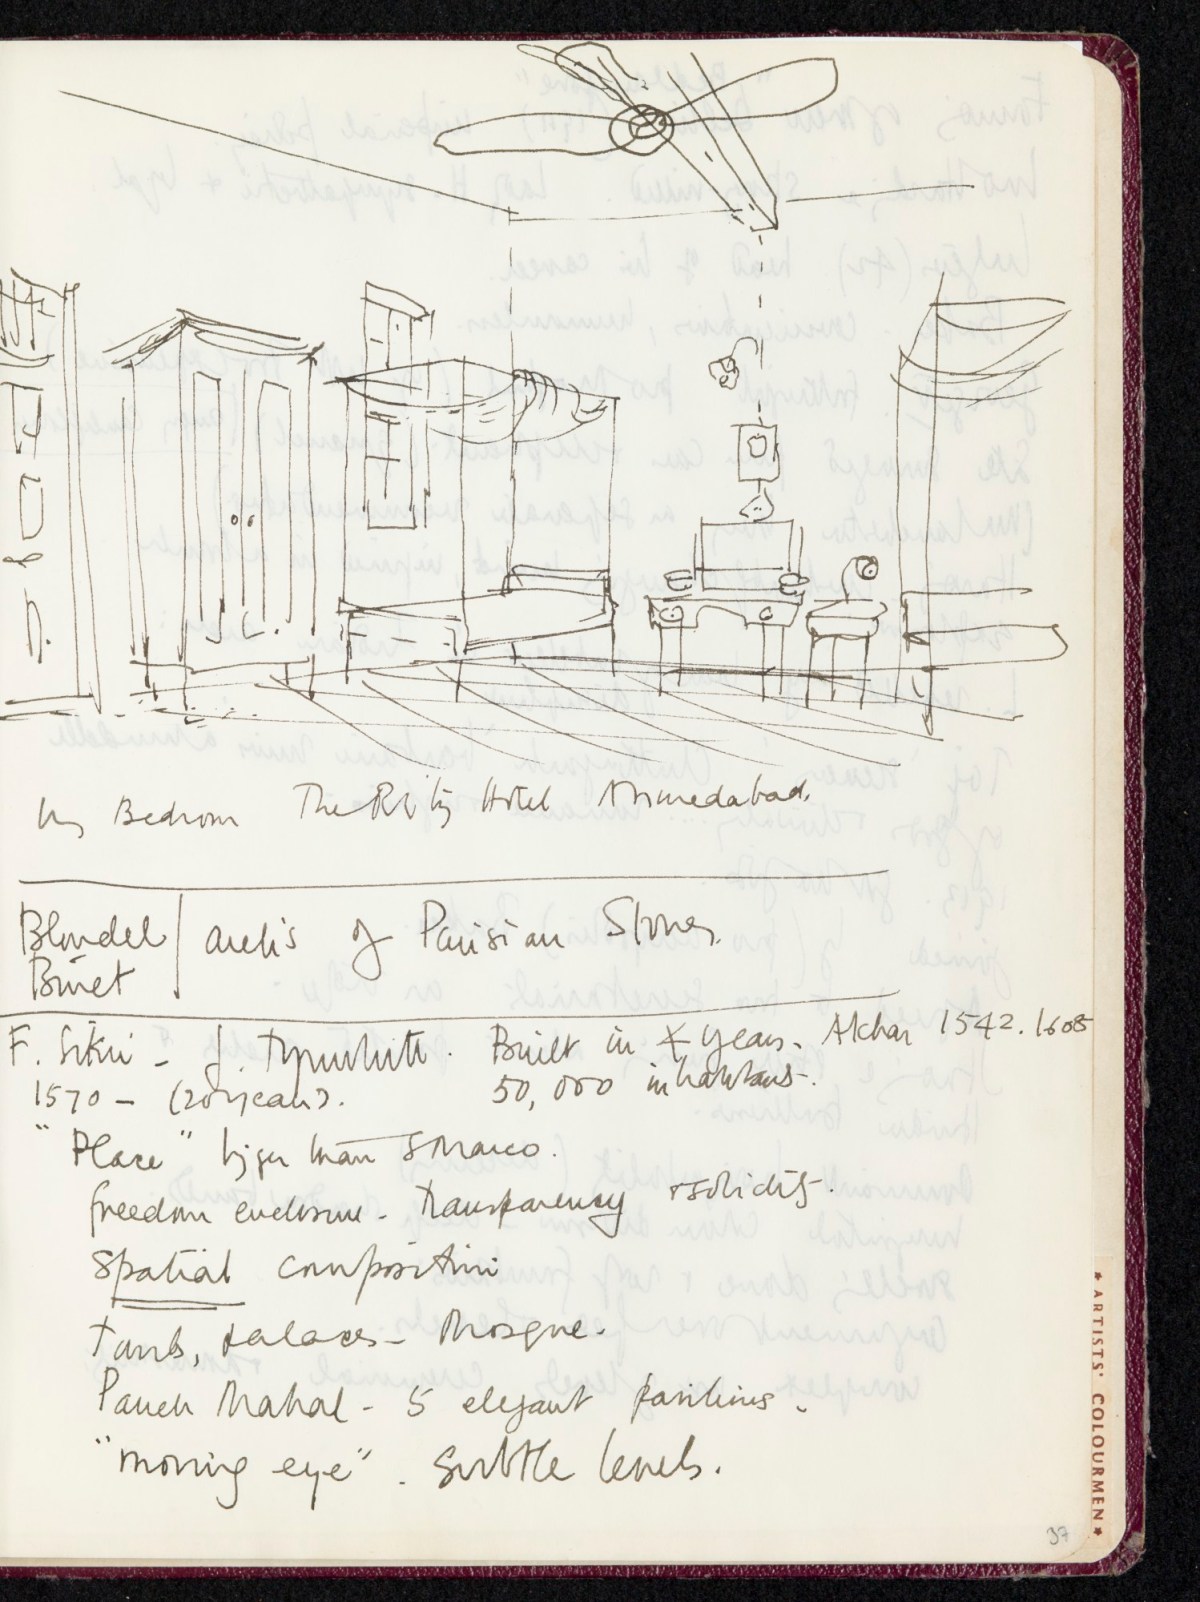 My Bedroom The Ritz Hotel Ahmedabad.
Blondel archs of Parisian Stores.
Binet
F. Sikri - Built in 7 years. Akbar 1542. 1605
1570 - (20 years). 50,000 inhabitants.
"Place" bigger than S Marco.
freedom enclosure - transparency + solidity.
Spatial composition
Tomb, palaces - Mosque.
Panch Mahal - 5 elegant pavilions.
"moving eye". Subtle levels.
★ ARTISTS' COLOURMEN ★
37